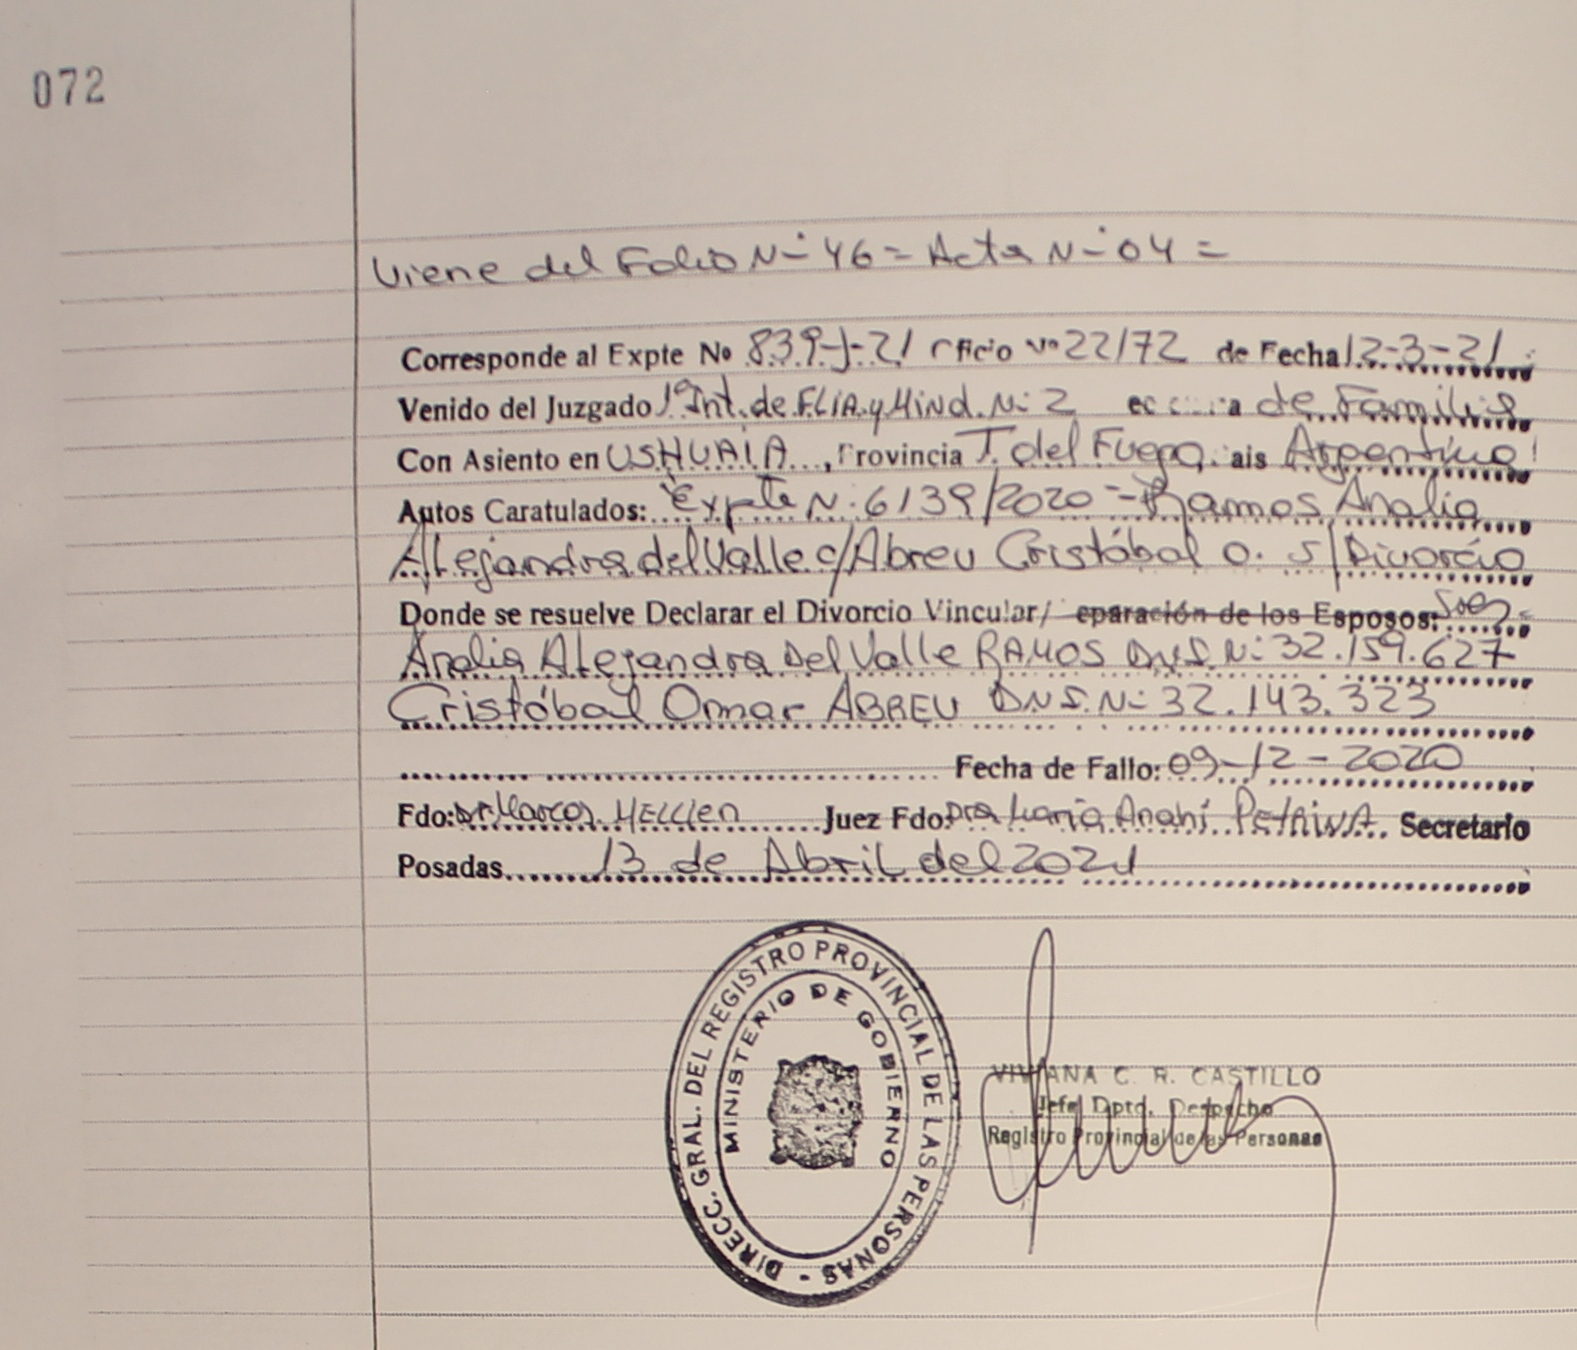 072
Viene del Folio Nº 46 = Acta Nº 04 =
Corresponde al Expte Nº 839-J-21 oficio Nº 22/72 de Fecha 12-3-21
Venido del Juzgado 1º Int. de FLIA. y Mino. Nº 2 de Familia
Con Asiento en USHUAIA, Provincia T. del Fuego. ais Argentina
Autos Caratulados: Expte Nº 6139/2020 - Ramos Analia
Alejandra del Valle c/Abreu Cristóbal O. s/Divorcio
Donde se resuelve Declarar el Divorcio Vincular/ eparación de los Esposos:
Analia Alejandra Del Valle RAMOS D.N.I. Nº 32.159.627
Cristóbal Omar ABREU DNI. Nº 32.143.323
Fecha de Fallo: 09-12-2020
Fdo: Dr Marcos. Juez Fdo Dra Maria Anahí Secretario
Posadas 13 de Abril del 2021
DIRECC. GRAL. DEL REGISTRO PROVINCIAL DE LAS PERSONAS -
MINISTERIO DE GOBIERNO
VIVIANA C. R. CASTILLO
Jefe Dpto. Despacho
Registro Provincial de las Personas